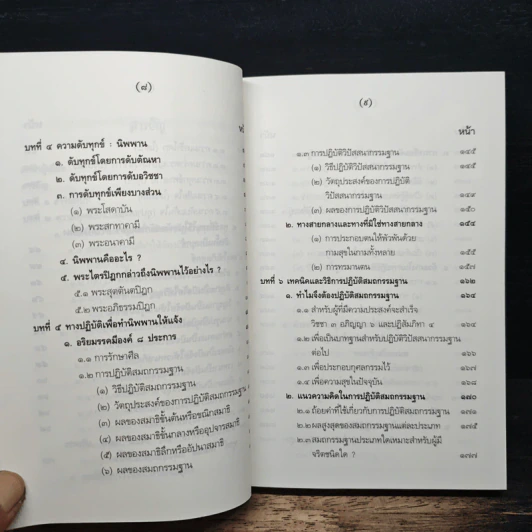 (๘)
บทที่ ๔ ความดับทุกข์ : นิพพาน
๑. ดับทุกข์โดยการดับตัณหา
๒. ดับทุกข์โดยการดับอวิชชา
๓. การดับทุกข์เพียงบางส่วน
(๑) พระโสดาบัน
(๒) พระสกทาคามี
(๓) พระอนาคามี
๔. นิพพานคืออะไร ?
๕. พระไตรปิฎกกล่าวถึงนิพพานไว้อย่างไร ?
๕.๑ พระสุตตันตปิฎก
๕.๒ พระอภิธรรมปิฎก
บทที่ ๕ ทางปฏิบัติเพื่อทำนิพพานให้แจ้ง
๑. อริยมรรคมีองค์ ๘ ประการ
๑.๑ การรักษาศีล
๑.๒ การปฏิบัติสมถกรรมฐาน
(๑) วิธีปฏิบัติสมถกรรมฐาน
(๒) วัตถุประสงค์ของการปฏิบัติสมถกรรมฐาน
(๓) ผลของสมาธิขั้นต้นหรือขณิกสมาธิ
(๔) ผลของสมาธิขั้นกลางหรืออุปจารสมาธิ
(๕) ผลของสมาธิลึกหรืออัปนาสมาธิ
(๖) ผลของสมถกรรมฐาน
(๙)
หน้า
๑.๓ การปฏิบัติวิปัสสนากรรมฐาน ๑๔๕
(๑) วิธีปฏิบัติวิปัสสนากรรมฐาน ๑๔๕
(๒) วัตถุประสงค์ของการปฏิบัติ
วิปัสสนากรรมฐาน ๑๔๙
(๓) ผลของการปฏิบัติวิปัสสนากรรมฐาน ๑๕๐
๒. ทางสายกลางและทางที่มิใช่ทางสายกลาง ๑๕๔
(๑) การประกอบตนให้พัวพันด้วย
กามสุขในกามทั้งหลาย ๑๕๕
(๒) การทรมานตน ๑๕๗
บทที่ ๖ เทคนิคและวิธีการปฏิบัติสมถกรรมฐาน ๑๖๒
๑. ทำไมจึงต้องปฏิบัติสมถกรรมฐาน ๑๖๓
๑.๑ สำหรับผู้ที่มีความประสงค์จะสำเร็จ
วิชชา ๓ อภิญญา ๖ และปฏิสัมภิทา ๔ ๑๖๔
๑.๒ เพื่อเป็นบาทฐานสำหรับปฏิบัติวิปัสสนากรรมฐาน
ต่อไป ๑๖๖
๑.๓ เพื่อประกอบกุศลกรรมไว้ ๑๖๗
๑.๔ เพื่อความสุขในปัจจุบัน ๑๖๘
๒. แนวความคิดในการปฏิบัติสมถกรรมฐาน ๑๗๐
๒.๑ ถ้อยคำที่ใช้เกี่ยวกับการปฏิบัติสมถกรรมฐาน ๑๗๑
๒.๒ ผลสูงสุดของสมถกรรมฐานแต่ละประเภท ๑๗๕
๒.๓ สมถกรรมฐานประเภทใดเหมาะสำหรับผู้มี
จริตชนิดใด ? ๑๗๗